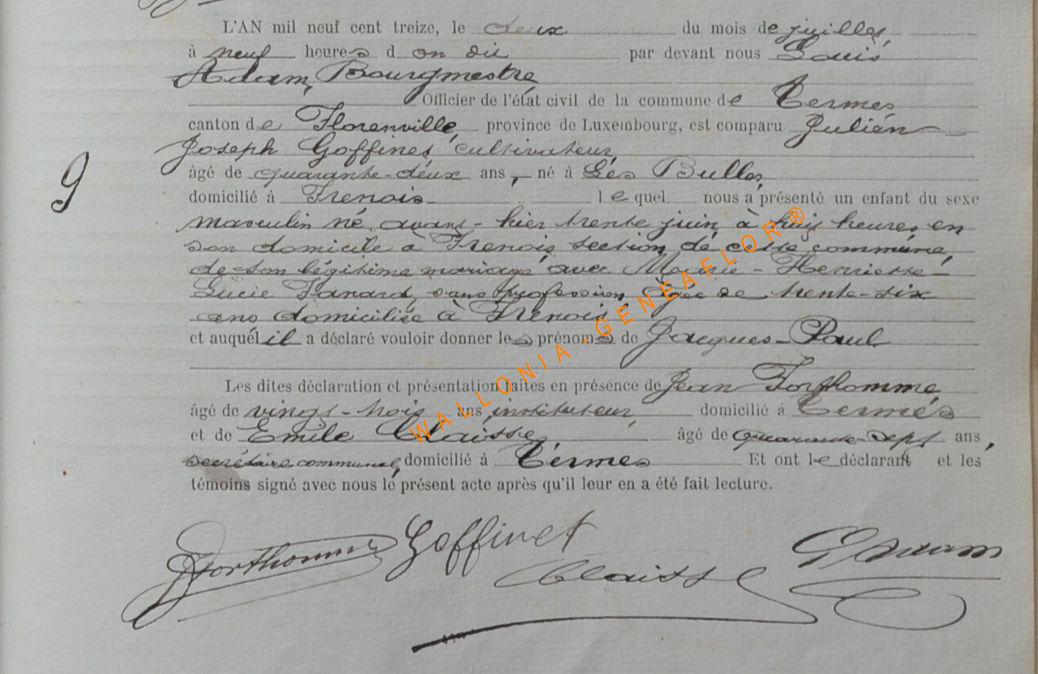 L'AN mil neuf cent treize, le deux du mois de juillet
à neuf heures d on dix par devant nous Louis
Adam, Bourgmestre
Officier de l'état civil de la commune de Termes
canton de Florenville, province de Luxembourg, est comparu Julien
Joseph Goffinet, cultivateur,
9
âgé de quarante-deux ans, né à Les Bulles,
domicilié à Frenois lequel nous a présenté un enfant du sexe
masculin né avant-hier trente juin, à huit heures en
son domicile à Frenois section de cette commune,
de son légitime mariage avec Marie-Henriette-
Lucie Panard, sans profession, âgée de trente-six
ans domiciliée à Frenois,
et auquel il a déclaré vouloir donner les prénoms de Jacques-Paul
Les dites déclaration et présentation faites en présence de Jean Forthomme
âgé de vingt-trois ans, instituteur, domicilié à Termes
et de Emile Claisse, âgé de quarante-sept ans,
secrétaire communal, domicilié à Termes Et ont le déclarant et les
témoins signé avec nous le présent acte après qu'il leur en a été fait lecture.
JForthomme Goffinet Claisse Adam
WALLONIA GENEAFLOR®